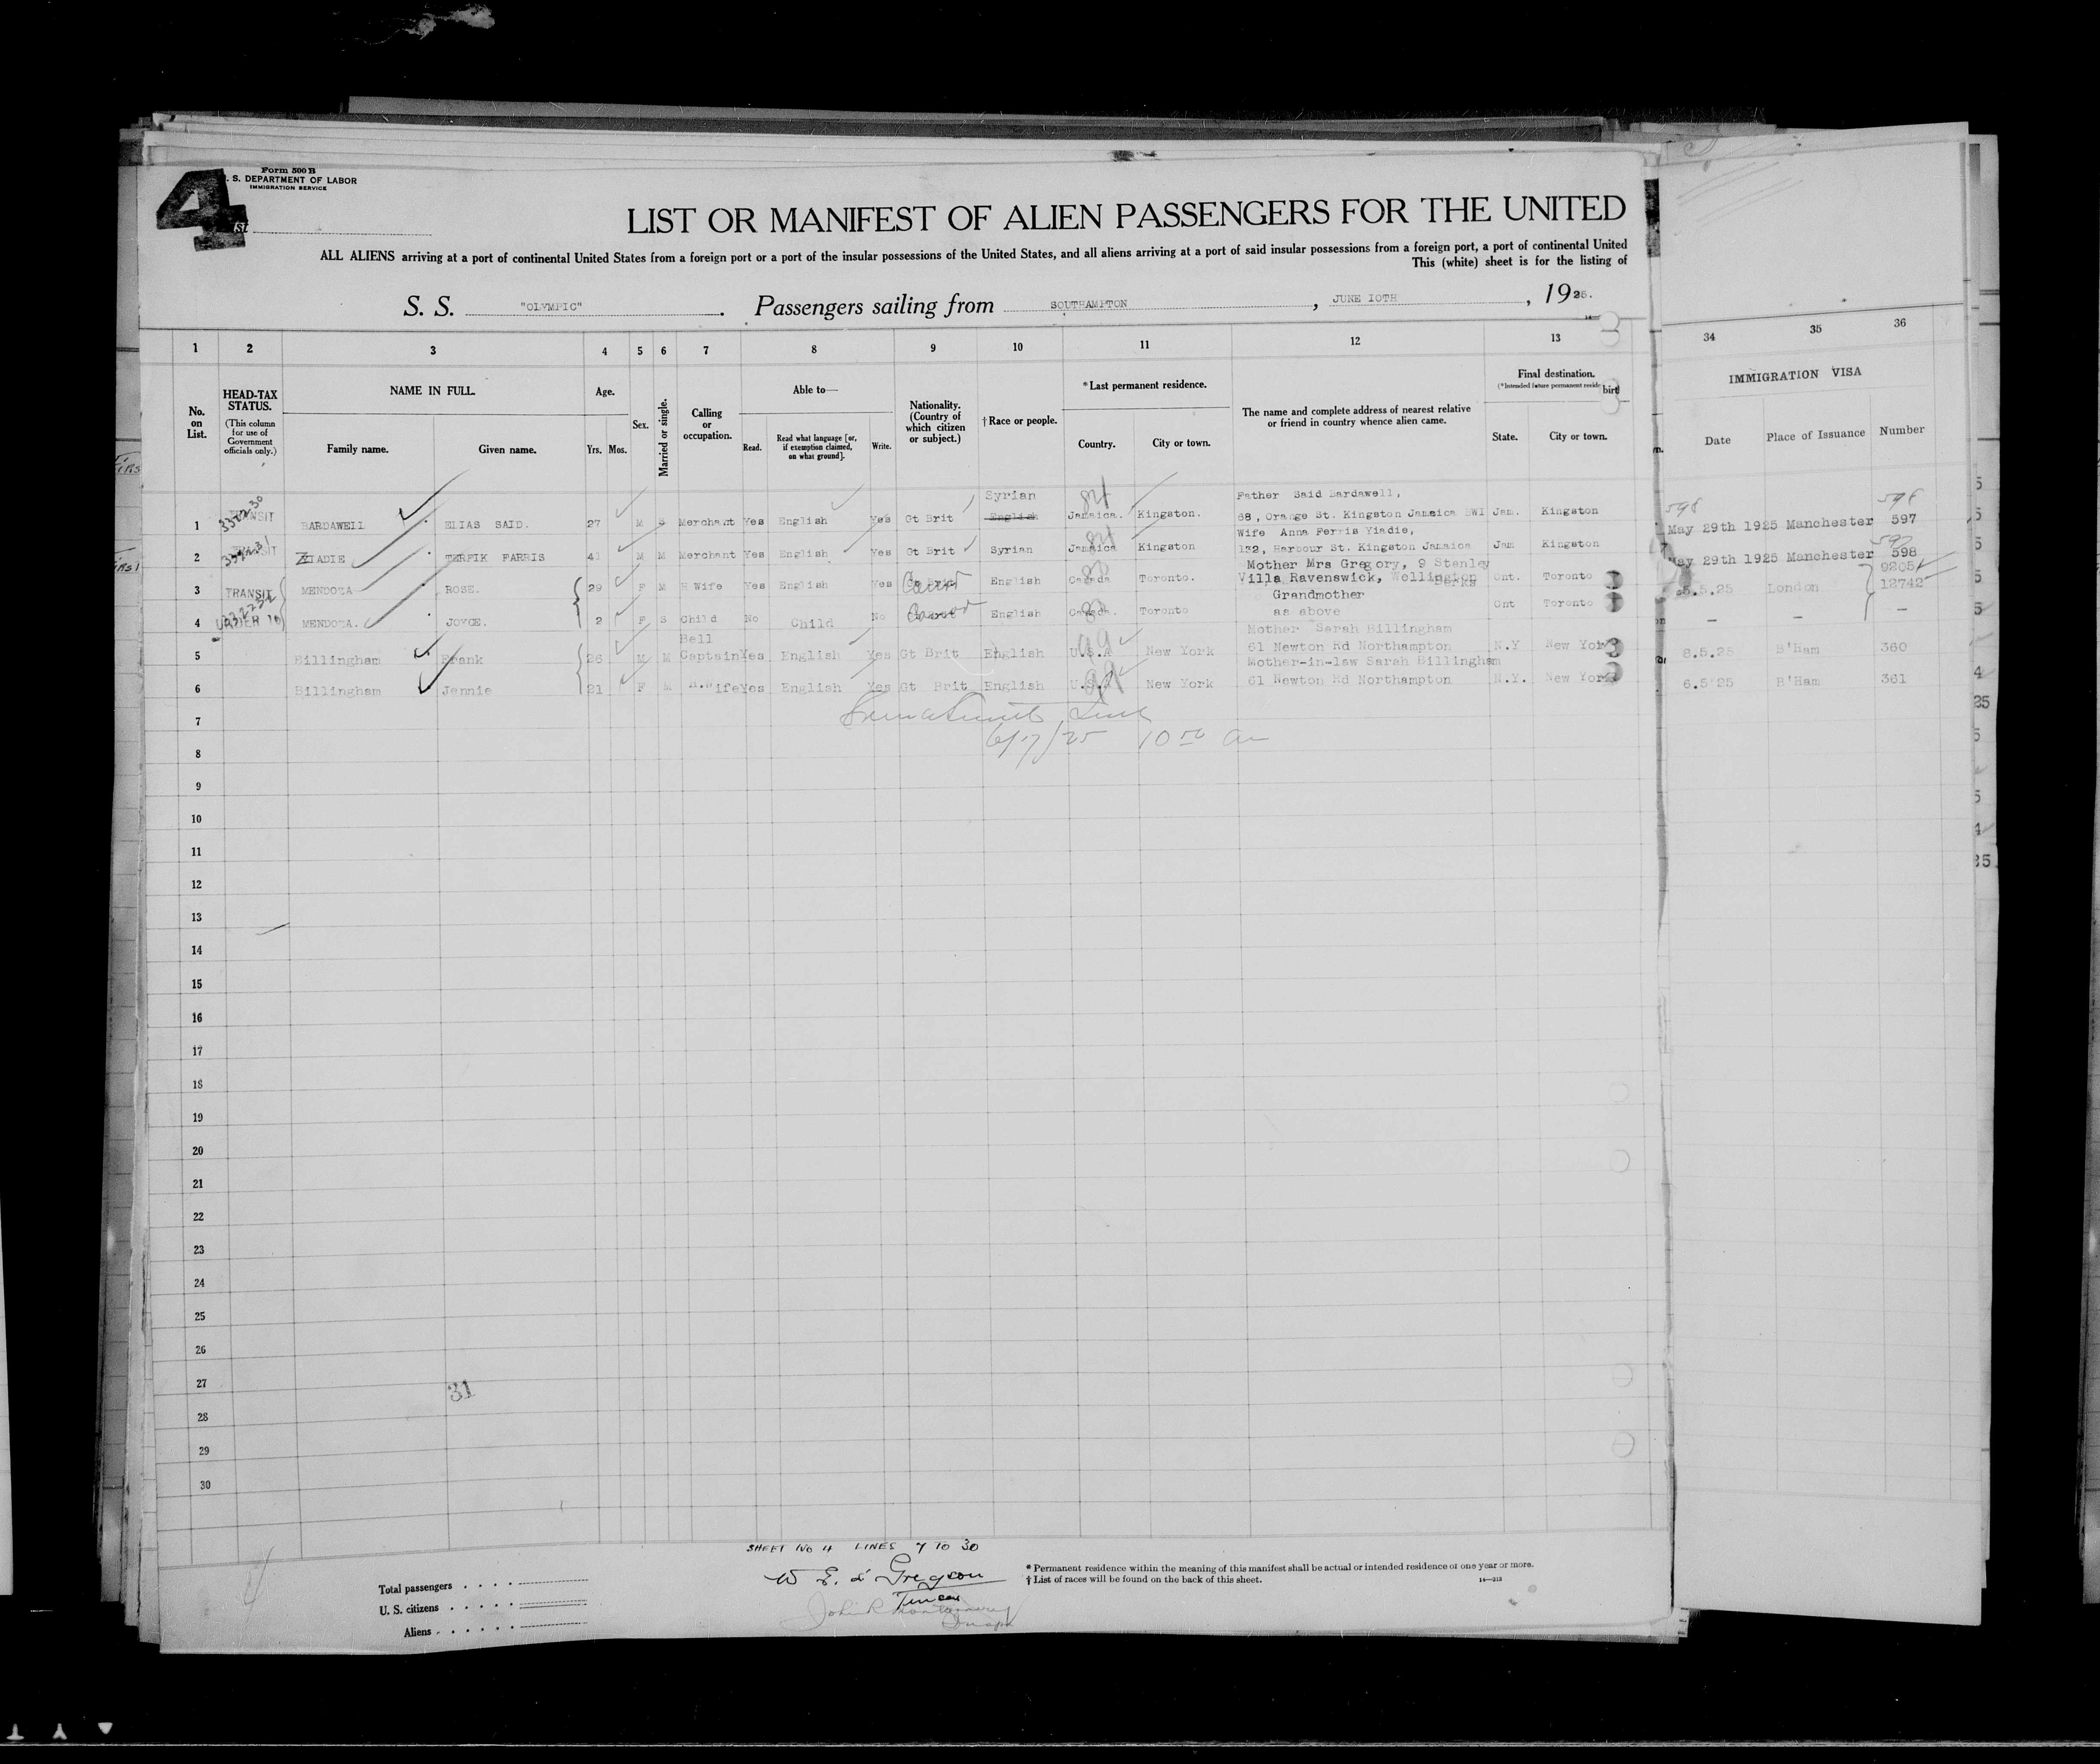 4
Form 500 B
S. DEPARTMENT OF LABOR
IMMIGRATION SERVICE
LIST OR MANIFEST OF ALIEN PASSENGERS FOR THE UNITED
ALL ALIENS arriving at a port of continental United States from a foreign port or a port of the insular possessions of the United States, and all aliens arriving at a port of said insular possessions from a foreign port, a port of continental United
This (white) sheet is for the listing of
S. S. "OLYMPIC". Passengers sailing from SOUTHAMPTON, JUNE 10TH, 1925.
1 2 3 4 5 6 7 8 9 10 11 12 13 34 35 36
No. on List.
HEAD-TAX STATUS.
(This column for use of Government officials only.)
NAME IN FULL.
Family name. Given name.
Age.
Yrs. Mos.
Sex.
Married or single.
Calling or occupation.
Able to—
Read. Read what language [or, if exemption claimed, on what ground]. Write.
Nationality. (Country of which citizen or subject.)
†Race or people.
*Last permanent residence.
Country. City or town.
The name and complete address of nearest relative or friend in country whence alien came.
Final destination.
(*Intended future permanent reside
birt
State. City or town.
IMMIGRATION VISA
Date Place of Issuance Number
Syrian Father Said Bardawell, 598 598
1 TRANSIT BARDAWELL ELIAS SAID. 27 M S Merchant Yes English Yes Gt Brit English Jamaica. Kingston. 68, Orange St. Kingston Jamaica BWI Jam. Kingston May 29th 1925 Manchester 597
Wife Anna Ferris Yiadie, 597
2 TRANSIT ZIADIE TERFIK FARRIS 41 M M Merchant Yes English Yes Gt Brit Syrian Jamaica Kingston 132, Harbour St. Kingston Jamaica Jam Kingston May 29th 1925 Manchester 598
Mother Mrs Gregory, 9 Stanley 9205
3 TRANSIT MENDOZA ROSE. 29 F M H Wife Yes English Yes English Canada Toronto. Villa Ravenswick, Wellington Ont. Toronto 5.5.25 London 12742
Grandmother
4 UNDER 16 MENDOZA. JOYCE. 2 F S Child No Child No English Canada Toronto as above Ont Toronto – – –
Bell Mother Sarah Billingham
5 Billingham Frank 26 M M Captain Yes English Yes Gt Brit English U.S.A New York 61 Newton Rd Northampton N.Y New York 8.5.25 B'Ham 360
Mother-in-law Sarah Billingham
6 Billingham Jennie 21 F M H.Wife Yes English Yes Gt Brit English U.S.A New York 61 Newton Rd Northampton N.Y. New York 6.5.25 B'Ham 361
7
6/17/25 10 50 am
8
9
10
11
12
13
14
15
16
17
18
19
20
21
22
23
24
25
26
27
31
28
29
30
SHEET No 4 LINES 7 TO 30
W E d Gregson
John R Montgomery
Total passengers
U. S. citizens
Aliens
* Permanent residence within the meaning of this manifest shall be actual or intended residence of one year or more.
† List of races will be found on the back of this sheet. 14—212